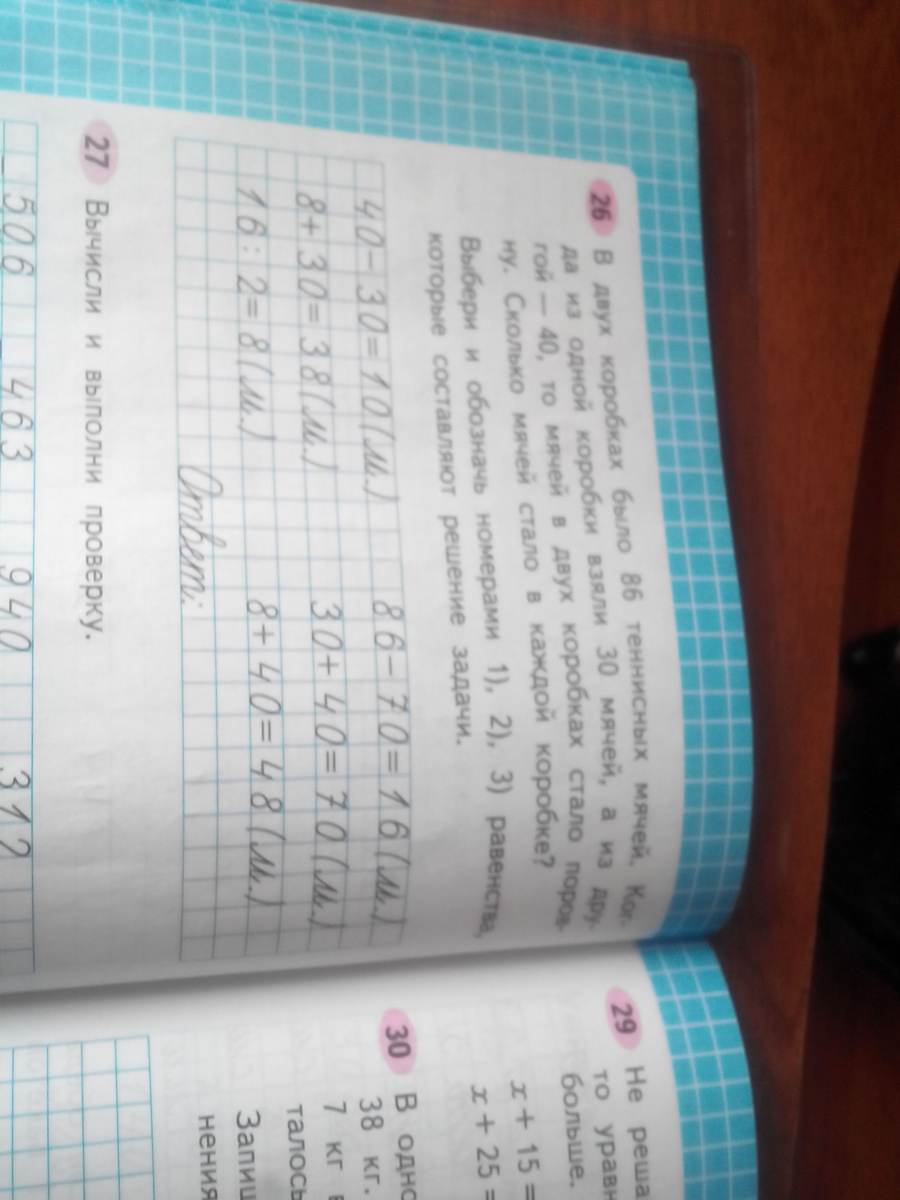 26 В двух коробках было 86 теннисных мячей. Ког-
да из одной коробки взяли 30 мячей, а из дру-
гой — 40, то мячей в двух коробках стало поров-
ну. Сколько мячей стало в каждой коробке?
Выбери и обозначь номерами 1), 2), 3) равенства,
которые составляют решение задачи.
40 − 30 = 10 (м.) 86 − 70 = 16 (м.)
8 + 30 = 38 (м.) 30 + 40 = 70 (м.)
16 : 2 = 8 (м.) 8 + 40 = 48 (м.)
Ответ:
27 Вычисли и выполни проверку.
506 463 940 312
29 Не реша
то уравн
больше.
x + 15 =
x + 25 =
30 В одно
38 кг.
7 кг
талось
Запиш
нения